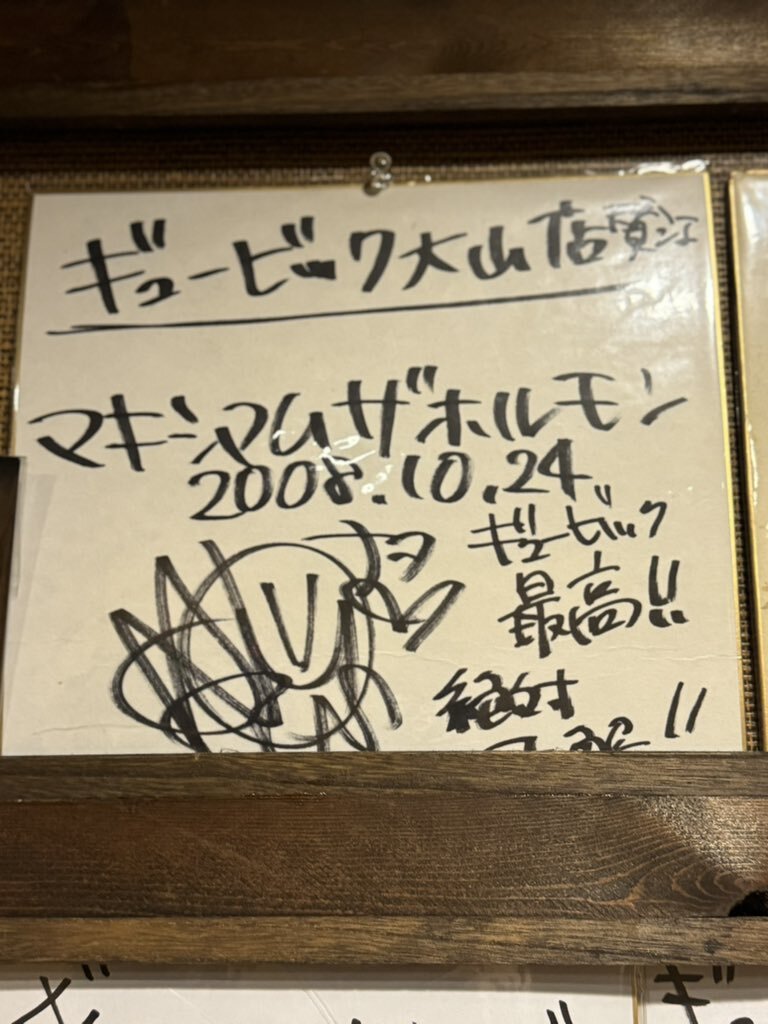 ギュービック大山店賛江
マキシマムザホルモン
2008.10.24
ナヲ
ギュービック
最高!!
絶対
!!
ギ
ギ